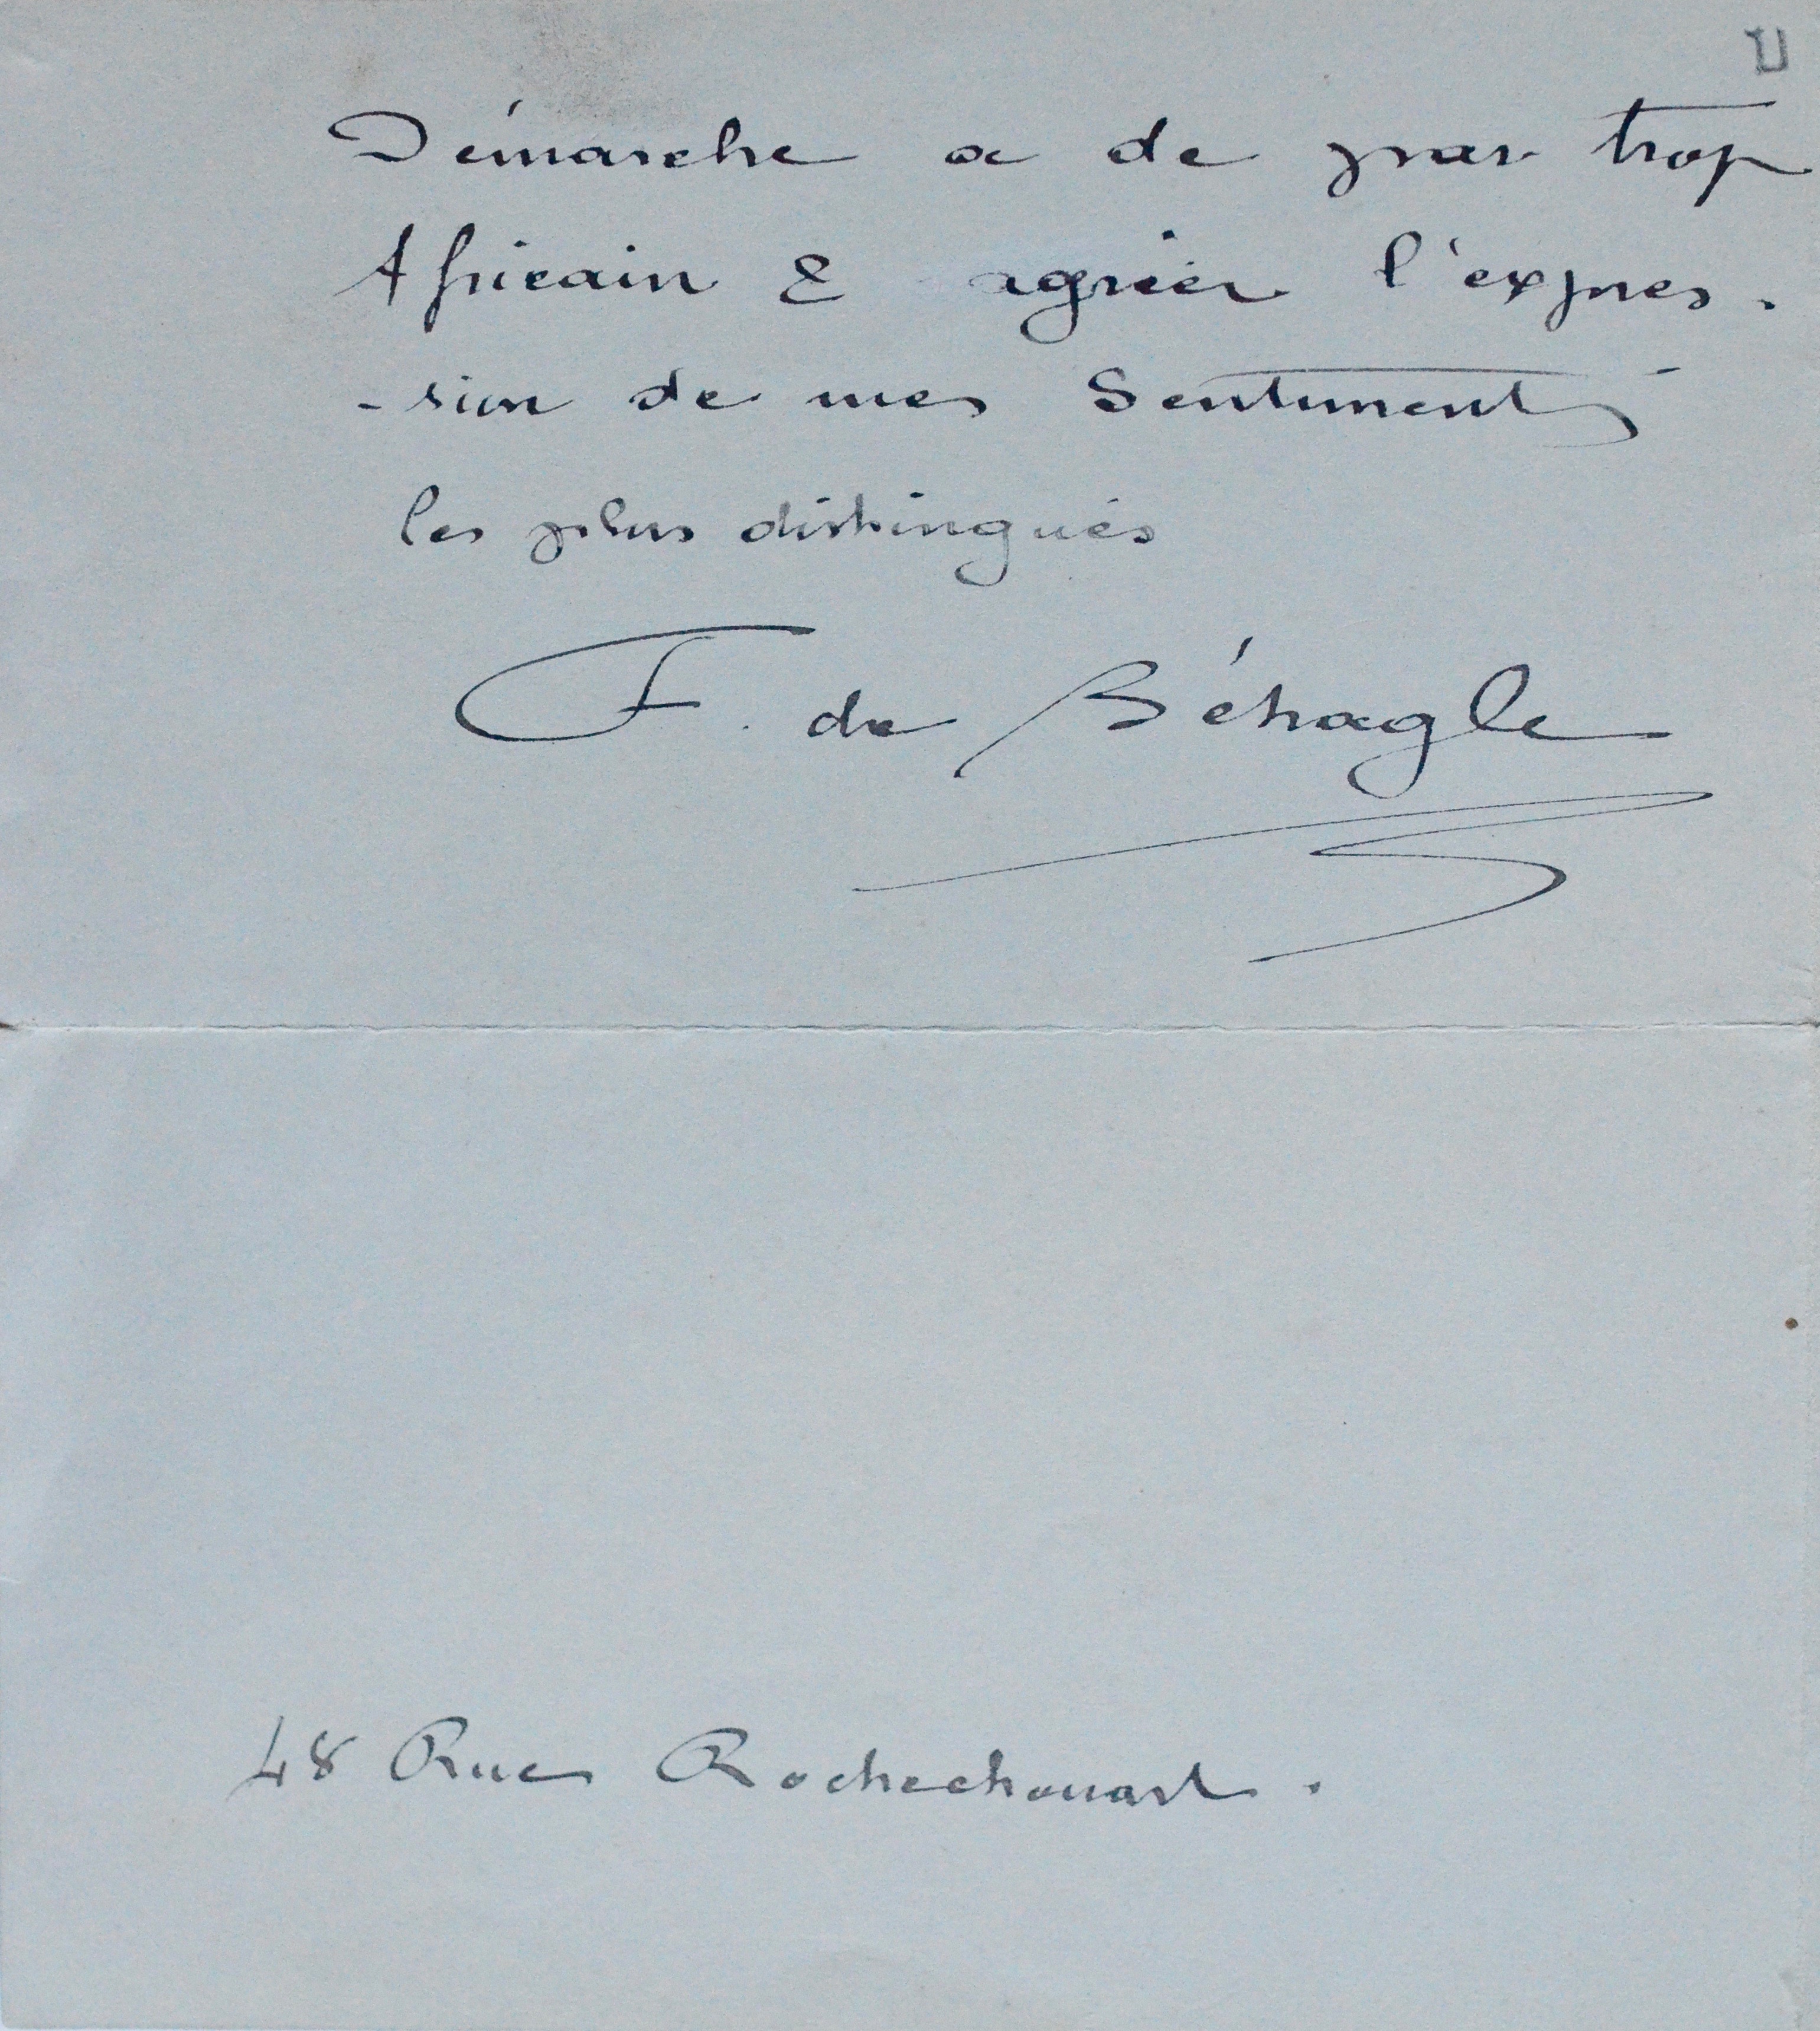 Démarche a de par trop
Africain & agréer l'expres-
-sion de mes Sentiments
les plus distingués
F. de Béhagle
48 Rue Rochechouart.